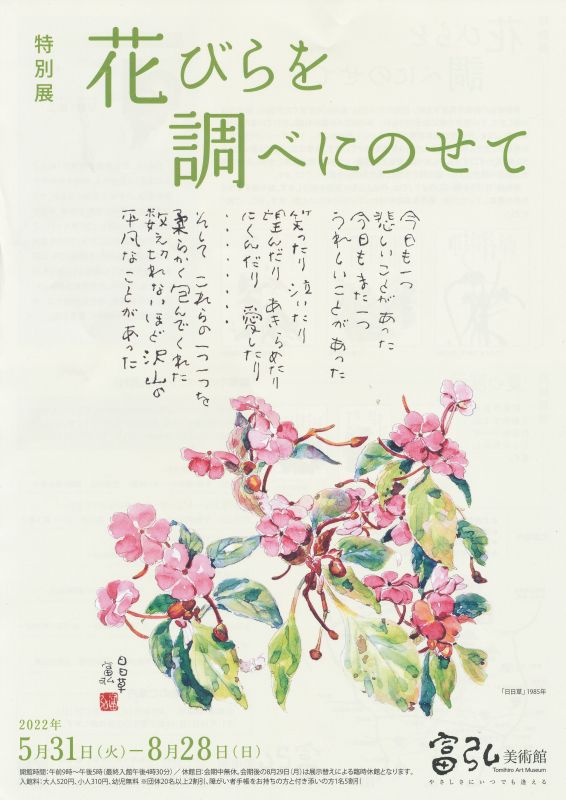 特別展
花びらを
調べにのせて
今日も一つ
悲しいことがあった
今日もまた一つ
うれしいことがあった
笑ったり 泣いたり
望んだり あきらめたり
にくんだり 愛したり
・・・・・・・
そして これらの一つ一つを
柔らかく包んでくれた
数え切れないほど沢山の
平凡なことがあった
日日草
富弘
「日日草」1985年
2022年
5月31日(火)―8月28日(日)
開館時間:午前9時〜午後5時(最終入館午後4時30分)/休館日:会期中無休。会期後の8月29日(月)は展示替えによる臨時休館となります。
入館料:大人520円、小人310円、幼児無料 ※団体20名以上2割引、障がい者手帳をお持ちの方と付き添いの方1名5割引
富弘美術館
Tomihiro Art Museum
やさしさにいつでも逢える